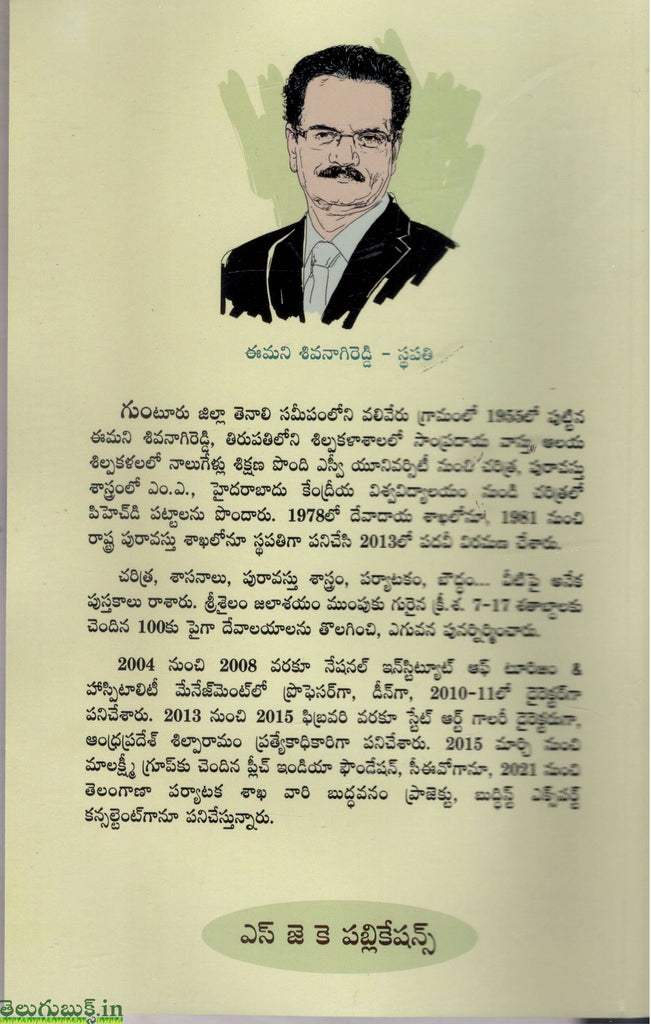 ఈమని శివనాగిరెడ్డి - స్థపతి
గుంటూరు జిల్లా తెనాలి సమీపంలోని వలివేరు గ్రామంలో 1955లో పుట్టిన
ఈమని శివనాగిరెడ్డి, తిరుపతిలోని శిల్పకళాశాలలో సాంప్రదాయ వాస్తు, ఆలయ
శిల్పకళలలో నాలుగేళ్లు శిక్షణ పొంది ఎస్వీ యూనివర్సిటీ నుంచి చరిత్ర, పురావస్తు
శాస్త్రంలో ఎం.ఎ., హైదరాబాదు కేంద్రీయ విశ్వవిద్యాలయం నుండి చరిత్రలో
పిహెచ్‌డి పట్టాలను పొందారు. 1978లో దేవాదాయ శాఖలోనూ, 1981 నుంచి
రాష్ట్ర పురావస్తు శాఖలోనూ స్థపతిగా పనిచేసి 2013లో పదవీ విరమణ చేశారు.
చరిత్ర, శాసనాలు, పురావస్తు శాస్త్రం, పర్యాటకం, బౌద్ధం... వీటిపై అనేక
పుస్తకాలు రాశారు. శ్రీశైలం జలాశయం ముంపుకు గురైన క్రీ.శ. 7-17 శతాబ్దాలకు
చెందిన 100కు పైగా దేవాలయాలను తొలగించి, ఎగువన పునర్నిర్మించారు.
2004 నుంచి 2008 వరకూ నేషనల్ ఇన్‌స్టిట్యూట్ ఆఫ్ టూరిజం &
హాస్పిటాలిటీ మేనేజ్‌మెంట్‌లో ప్రొఫెసర్‌గా, డీన్‌గా, 2010-11లో డైరెక్టర్‌గా
పనిచేశారు. 2013 నుంచి 2015 ఫిబ్రవరి వరకూ స్టేట్ ఆర్ట్ గాలరీ డైరెక్టరుగా,
ఆంధ్రప్రదేశ్ శిల్పారామం ప్రత్యేకాధికారిగా పనిచేశారు. 2015 మార్చి నుంచి
మాలక్ష్మీ గ్రూప్‌కు చెందిన ప్లీచ్ ఇండియా ఫౌండేషన్, సీఈవోగానూ, 2021 నుంచి
తెలంగాణా పర్యాటక శాఖ వారి బుద్ధవనం ప్రాజెక్టు, బుద్ధిస్ట్ ఎక్స్‌పర్ట్
కన్సల్టెంట్‌గానూ పనిచేస్తున్నారు.
ఎస్ జె కె పబ్లికేషన్స్
తెలుగుబుక్స్.in